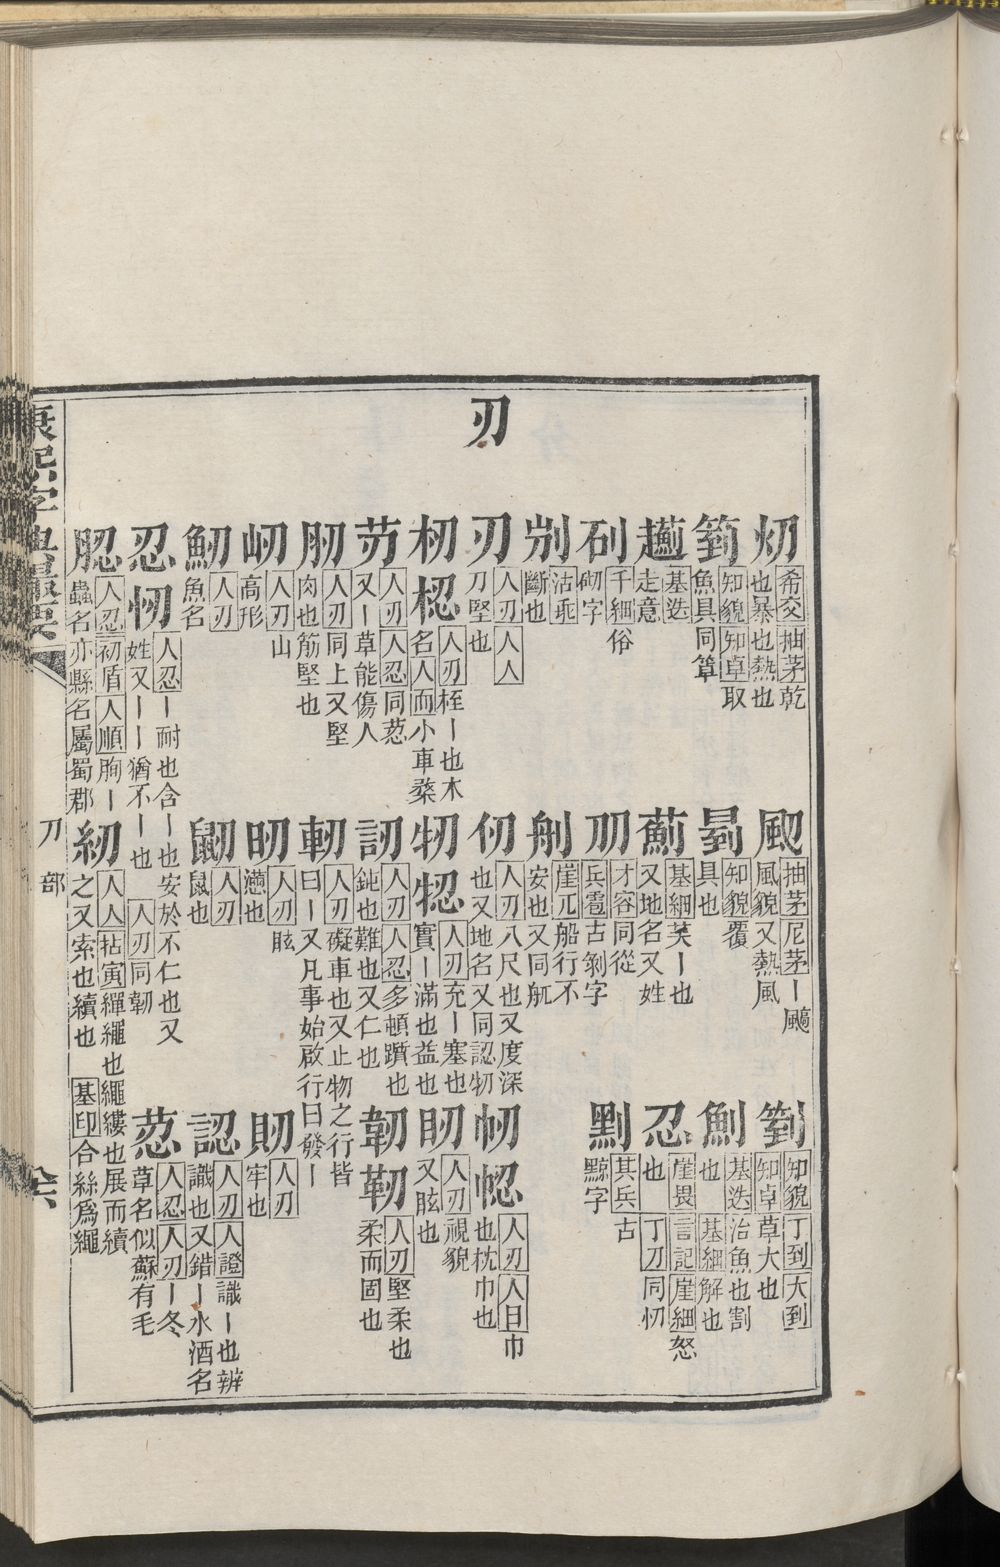 刃
灱 希交 抽茅 乾也暴也熱也
颮 抽茅 尼茅 丨颺風貌又熱風
劉 知貌 丁到 大到 知卓 草大也
箌 知貌 知卓 取魚具同箄
曑 知貌 覆具也
魝 基迭 治魚也割也 基細 解也
基迭 走意
薊 基細 芺丨也又地名又姓
忍 崖畏 言記 崖細 怒也 丁刀 同忉
千細 俗砌字
刅 才容 同從 兵雹 古剝字
剠 其兵 古黥字
沽乖 斷也
崖兀 船行不安也又同舤
刃 人刃 人人 刀堅也
仞 人刃 八尺也又度深也又地名又同認牣
帉 㤈 人刃 人日 巾也枕巾也
杒 梕 人刃 桎丨也木名 人而 小車橤
牣 人刃 充丨塞也實丨滿也益也
人刃 視貌又眩也
芀 人刃 人忍 同荵又丨草能傷人
訒 人刃 人忍 多頓躓也鈍也難也又仁也
韌 靭 人刃 堅柔也柔而固也
肕 人刃 同上又堅肉也筋堅也
軔 人刃 礙車也又止物之行皆曰丨又凡事始啟行曰發丨
屻 人刃 山高形
人刃 眩懣也
人刃 牢也
魛 人刃 魚名
人刃 鼠也
認 人刃 人證 識丨也辨識也又錯丨水酒名
忍 忉 人忍 丨耐也含丨也安於不仁也又姓又丨丨猶不丨也 人刃 同韌
荵 人忍 人刃 丨冬草名似蘇有毛
䏰 人忍 初盾 人順 朐丨蟲名亦縣名屬蜀郡
紉 人人 拈寅 繟繩也繩縷也展而續之又索也續也 基印 合絲爲繩
康熙字典撮要
刀部